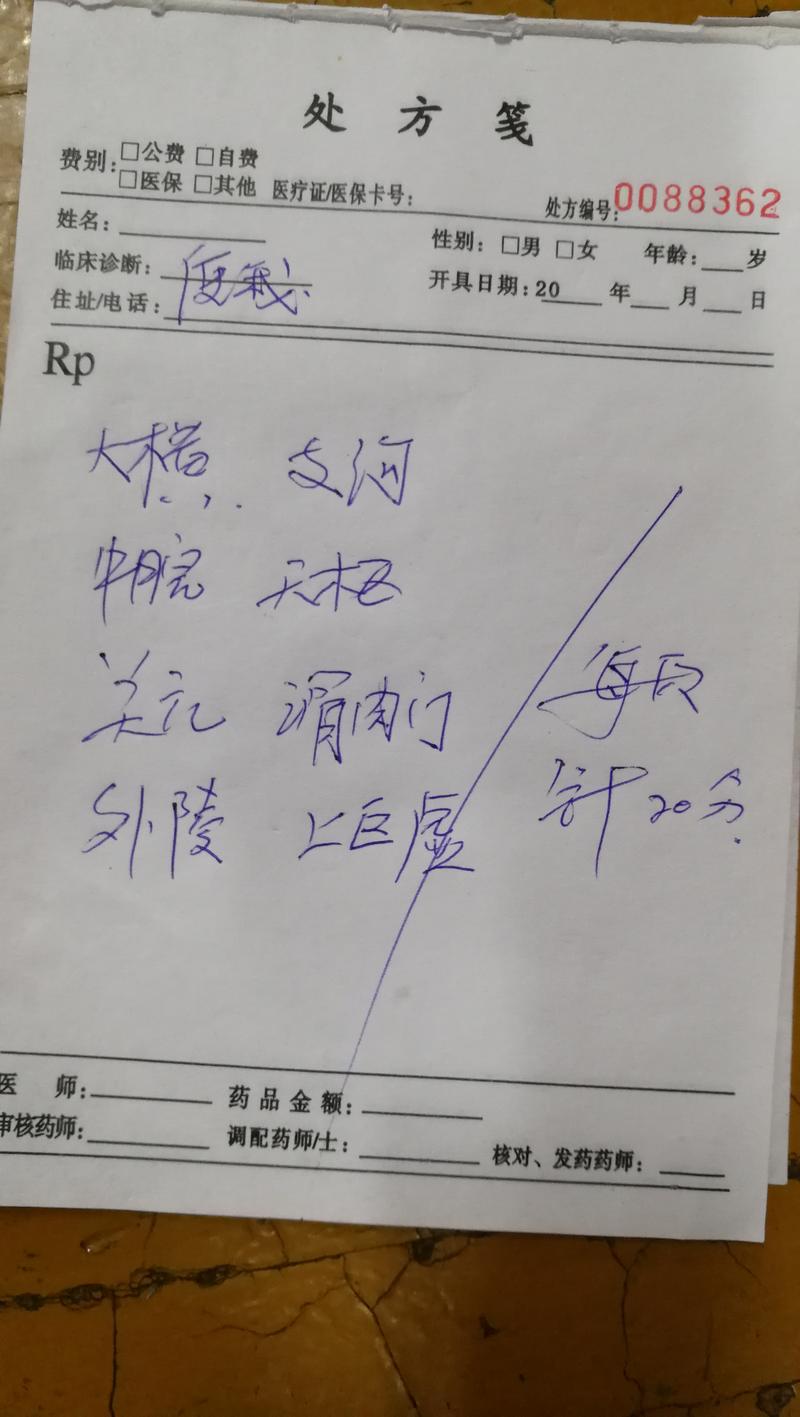 处方笺
费别: □公费 □自费
□医保 □其他 医疗证/医保卡号: 处方编号: 0088362
姓名: 性别: □男 □女 年龄: 岁
临床诊断: 便秘
住址/电话: 开具日期: 20 年 月 日
Rp
大横 支沟
中脘 天枢
关元 滑肉门 每次
外陵 上巨虚 针20分.
医 师: 药品金额:
审核药师: 调配药师/士: 核对、发药药师: